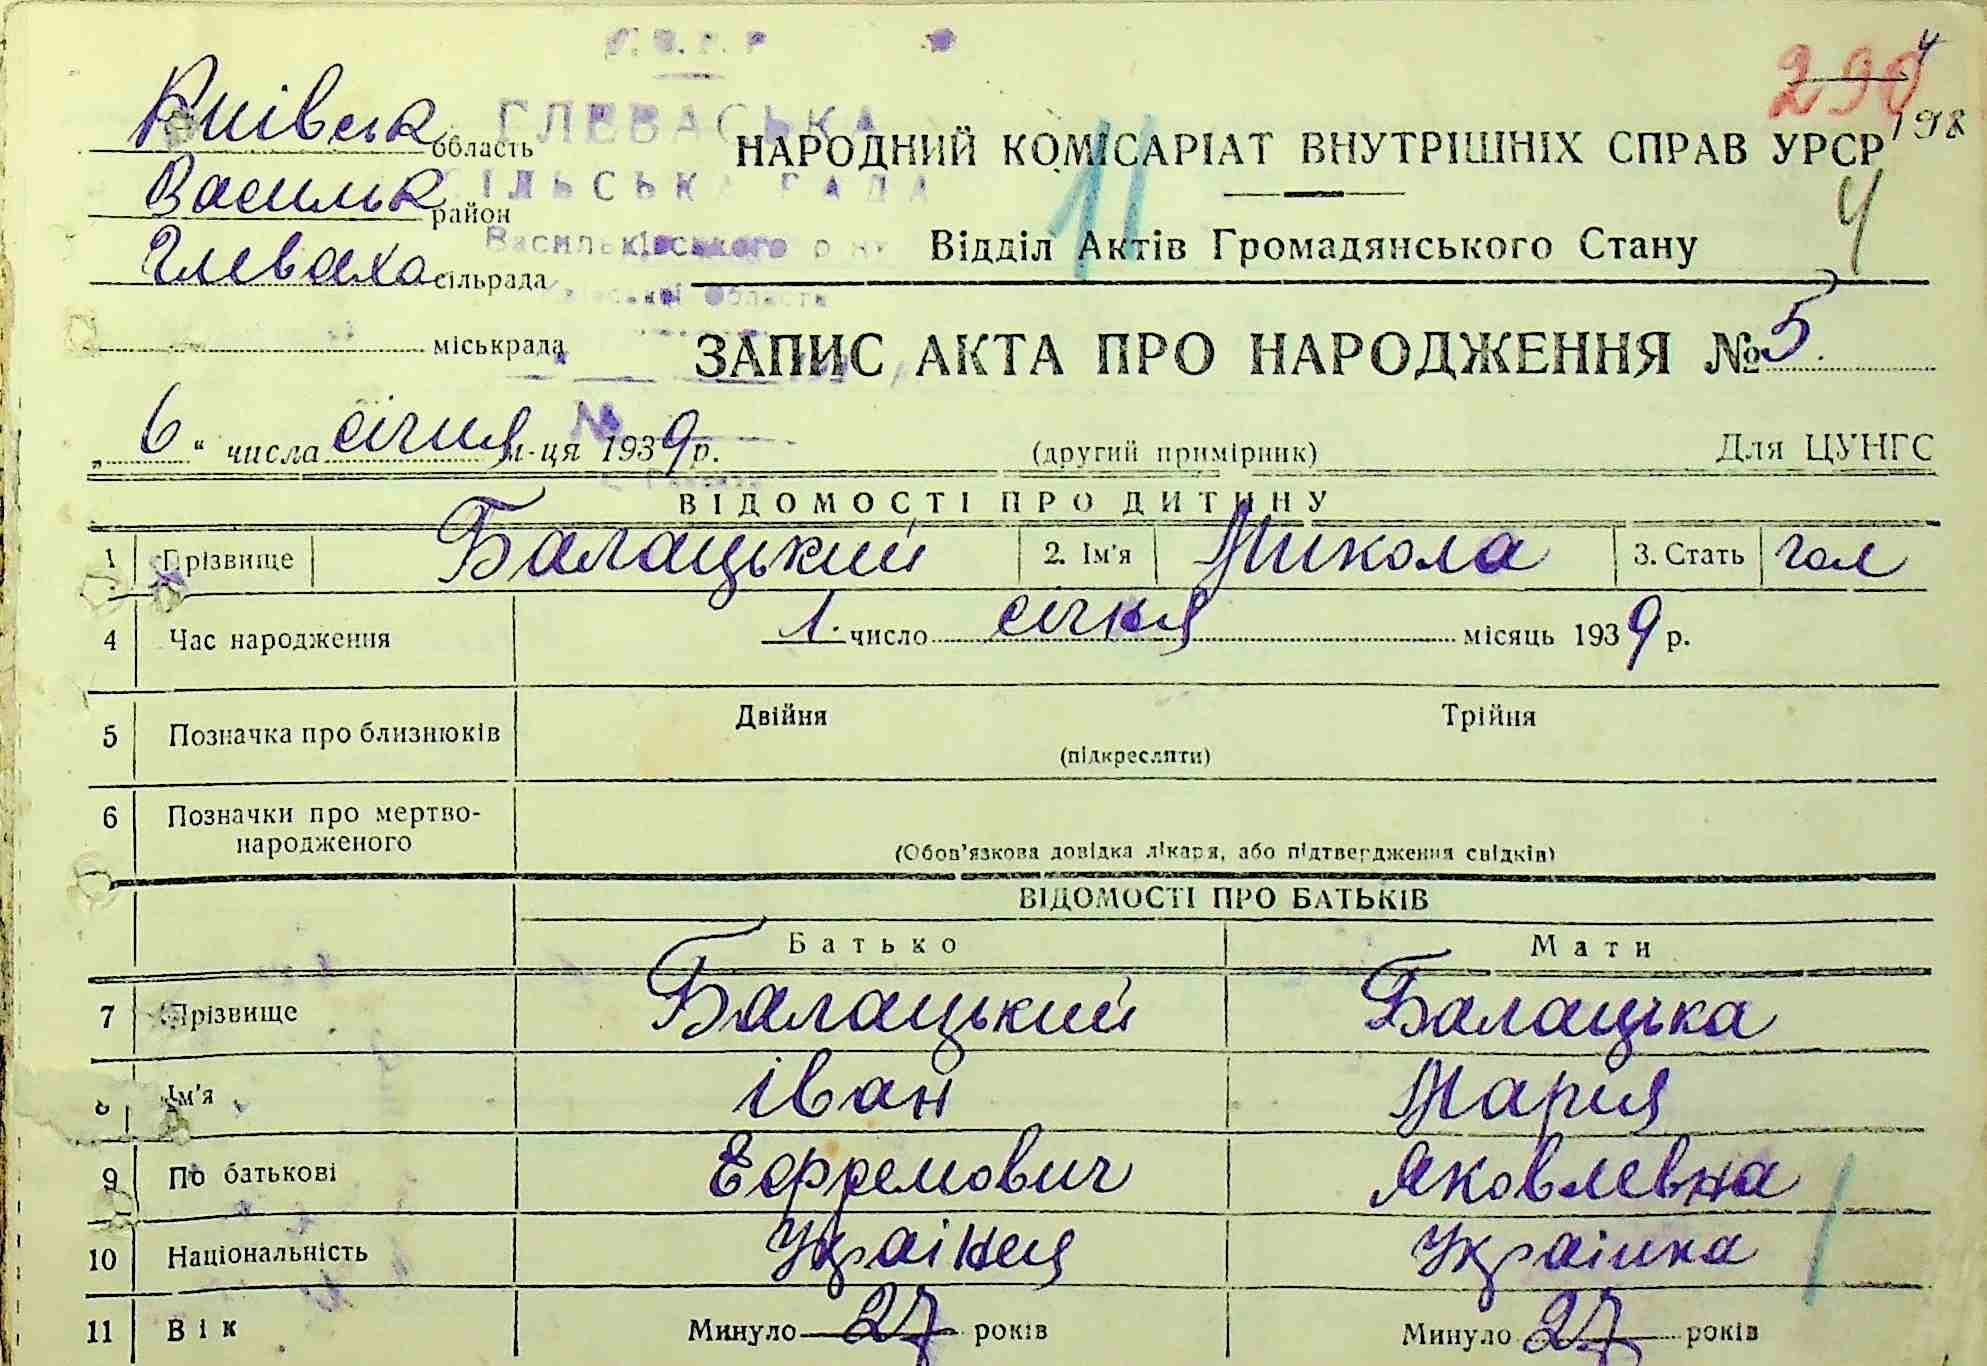 У.Р.С.Р
Київськ область
ГЛЕВАСЬКА
СІЛЬСЬКА РАДА
Васильківського р-ну
Київської Області
Васильк район
Глеваха сільрада
міськрада
290
4
198
НАРОДНИЙ КОМІСАРІАТ ВНУТРІШНІХ СПРАВ УРСР
11
4
Відділ Актів Громадянського Стану
ЗАПИС АКТА ПРО НАРОДЖЕННЯ № 5.
№
„6“ числа січня м-ця 1939 р. (другий примірник) Для ЦУНГС
ВІДОМОСТІ ПРО ДИТИНУ
1 Прізвище Балацький 2. Ім'я Микола 3. Стать чол
4 Час народження 1. число січня місяць 1939 р.
5 Позначка про близнюків Двійня Трійня
(підкреслити)
6 Позначки про мертво-
народженого
(Обов'язкова довідка лікаря, або підтвердження свідків)
ВІДОМОСТІ ПРО БАТЬКІВ
Батько Мати
7 Прізвище Балацький Балацька
8 Ім'я Іван Марія
9 По батькові Єфремович Яковлевна
10 Національність Українец Українка
11 Вік Минуло 27 років Минуло 27 років